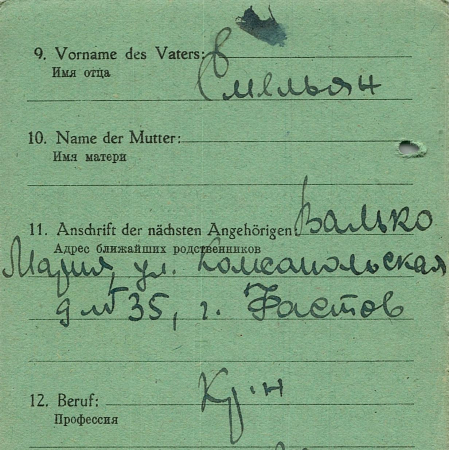 9. Vorname des Vaters: Емельян
Имя отца
10. Name der Mutter:
Имя матери
11. Anschrift der nächsten Angehörigen: Валько
Адрес ближайших родственников
Мария, ул. Комсапольская
д № 35, г. Фастов
12. Beruf: Кр-н
Профессия